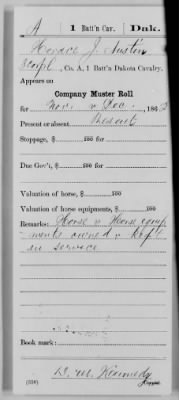 A 1 Batt'n Cav. Dak.
Horace J. Austin
Corpl, Co. A, 1 Batt'n Dakota Cavalry.
Appears on
Company Muster Roll
for Nov. & Dec., 1863
Present or absent Present
Stoppage, $ 100 for
Due Gov't, $ 100 for
Valuation of horse, $ 100
Valuation of horse equipments, $ 100
Remarks: Horse & Horse equip
ments owned & kept
in service
Book mark:
D. M. Kennedy
(358) Copyist.